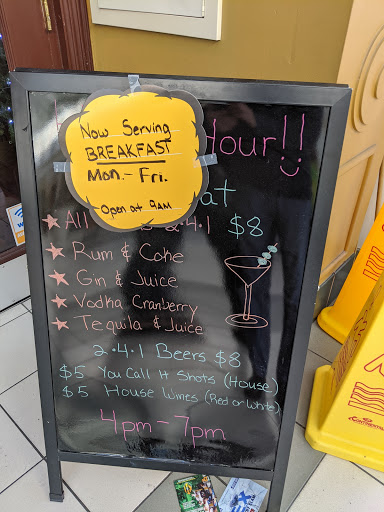 Now Serving
BREAKFAST
Mon. - Fri.
- Open at 9AM
Hour!!
at
All 2·4·1 $8
Rum & Coke
Gin & Juice
Vodka Cranberry
Tequila & Juice
2·4·1 Beers $8
$5 You Call It Shots (House)
$5 House Wines (Red or White)
4pm - 7pm